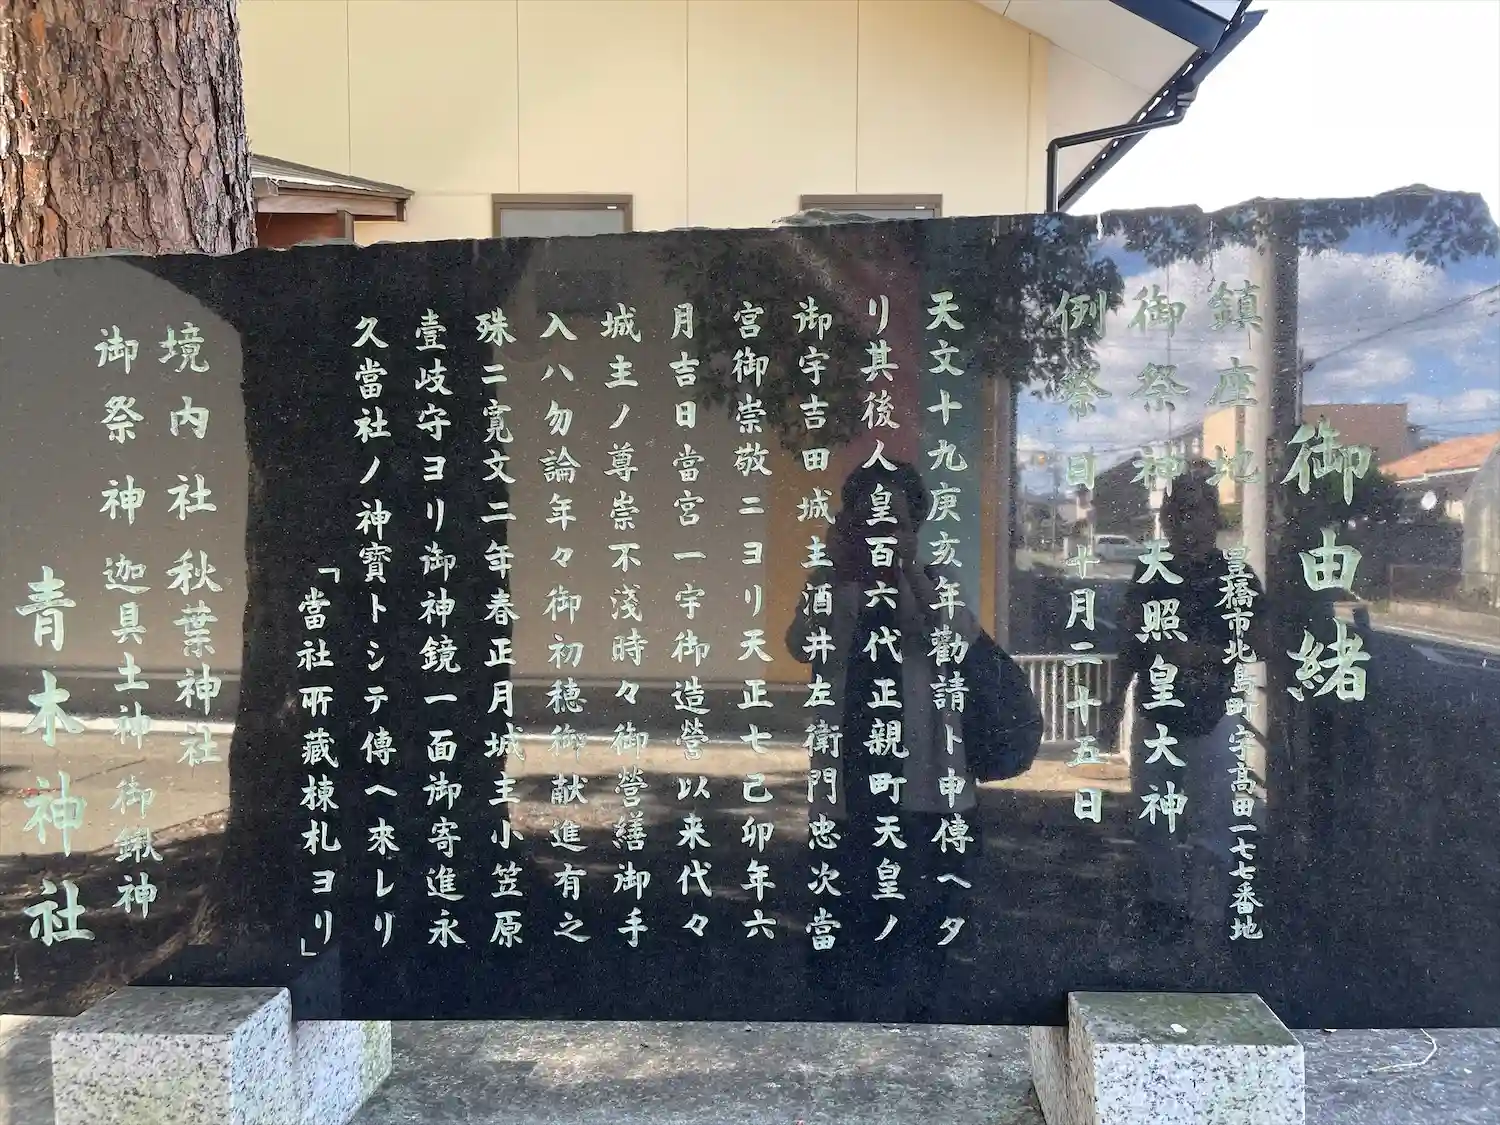 御由緒
鎮座地 豊橋市北島町字髙田一七七番地
御祭神 天照皇大神
例祭日 十月二十五日
天文十九庚亥年勸請ト申傳ヘタ
リ其後人皇百六代正親町天皇ノ
御宇吉田城主酒井左衛門忠次當
宮御崇敬ニヨリ天正七己卯年六
月吉日當宮一宇御造營以来代々
城主ノ尊崇不淺時々御營繕御手
入ハ勿論年々御初穂御献進有之
殊ニ寛文二年春正月城主小笠原
壹岐守ヨリ御神鏡一面御寄進永
久當社ノ神寳トシテ傳ヘ來レリ
「當社所藏棟札ヨリ」
境内社 秋葉神社
御祭神 迦具土神 御鍬神
青木神社